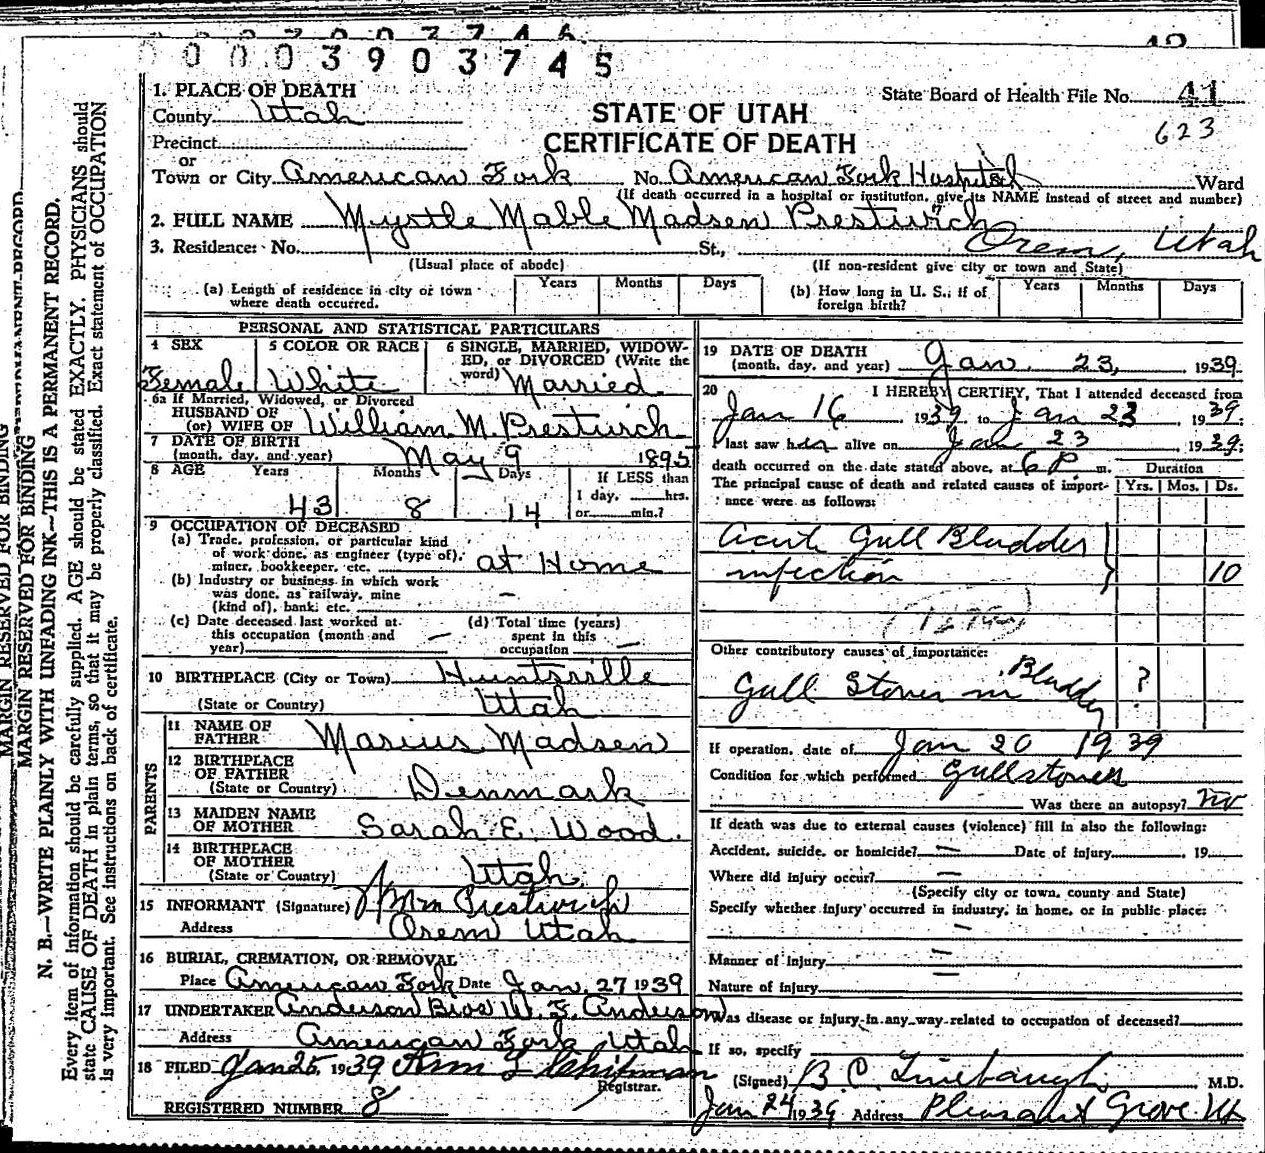 0 0 0 3 9 0 3 7 4 5
1. PLACE OF DEATH
County Utah
State Board of Health File No. 41
STATE OF UTAH
623
CERTIFICATE OF DEATH
Precinct
or
Town or City American Fork No. American Fork Hospital Ward
(If death occurred in a hospital or institution, give its NAME instead of street and number)
2. FULL NAME Myrtle Mable Madsen Prestwich
3. Residence: No. St., Orem, Utah
(Usual place of abode) (If non-resident give city or town and State)
(a) Length of residence in city or town where death occurred. Years Months Days (b) How long in U. S., if of foreign birth? Years Months Days
PERSONAL AND STATISTICAL PARTICULARS
4 SEX 5 COLOR OR RACE 6 SINGLE, MARRIED, WIDOW-
ED, or DIVORCED (Write the
word)
Female White Married
6a If Married, Widowed, or Divorced
HUSBAND OF
(or) WIFE OF William M. Prestwich
7 DATE OF BIRTH
(month, day, and year) May 9 1895
8 AGE Years Months Days If LESS than
1 day, hrs.
43 8 14 or min.?
9 OCCUPATION OF DECEASED
(a) Trade, profession, or particular kind
of work done, as engineer (type of),
miner, bookkeeper, etc. at Home
(b) Industry or business in which work
was done, as railway, mine
(kind of), bank, etc. –
(c) Date deceased last worked at
this occupation (month and
year) –
(d) Total time (years)
spent in this
occupation –
10 BIRTHPLACE (City or Town) Huntsville
(State or Country) Utah
PARENTS
11 NAME OF
FATHER Marius Madsen
12 BIRTHPLACE
OF FATHER
(State or Country) Denmark
13 MAIDEN NAME
OF MOTHER Sarah E. Wood.
14 BIRTHPLACE
OF MOTHER
(State or Country) Utah
15 INFORMANT (Signature) Wm Prestwich
Address Orem Utah
16 BURIAL, CREMATION, OR REMOVAL
Place American Fork Date Jan. 27 1939
17 UNDERTAKER Anderson Bros W. F. Anderson
Address American Fork Utah
18 FILED Jan 25, 1939 Chipman
Registrar.
REGISTERED NUMBER 8
19 DATE OF DEATH
(month, day, and year) Jan. 23, 1939
20 I HEREBY CERTIFY, That I attended deceased from
Jan 16 1939 to Jan 23 1939
I last saw her alive on Jan 23 1939;
death occurred on the date stated above, at 6 P m.
Duration
The principal cause of death and related causes of import-
ance were as follows:
Yrs. Mos. Ds.
Acute Gall Bladder
infection 10
Other contributory causes of importance:
Gall Stones in Bladder ?
If operation, date of Jan 20 1939
Condition for which performed Gallstones
Was there an autopsy? no
If death was due to external causes (violence) fill in also the following:
Accident, suicide, or homicide? – Date of injury 19
Where did injury occur? –
(Specify city or town, county and State)
Specify whether injury occurred in industry, in home, or in public place:
–
Manner of injury –
Nature of injury –
Was disease or injury in any way related to occupation of deceased?
If so, specify
(Signed) B. C. Linebaugh M.D.
Jan 24 1939 Address Pleasant Grove Ut
MARGIN RESERVED FOR BINDING
MARGIN RESERVED FOR BINDING
N. B.—WRITE PLAINLY WITH UNFADING INK—THIS IS A PERMANENT RECORD.
Every item of information should be carefully supplied. AGE should be stated EXACTLY. PHYSICIANS should
state CAUSE OF DEATH in plain terms, so that it may be properly classified. Exact statement of OCCUPATION
is very important. See instructions on back of certificate.